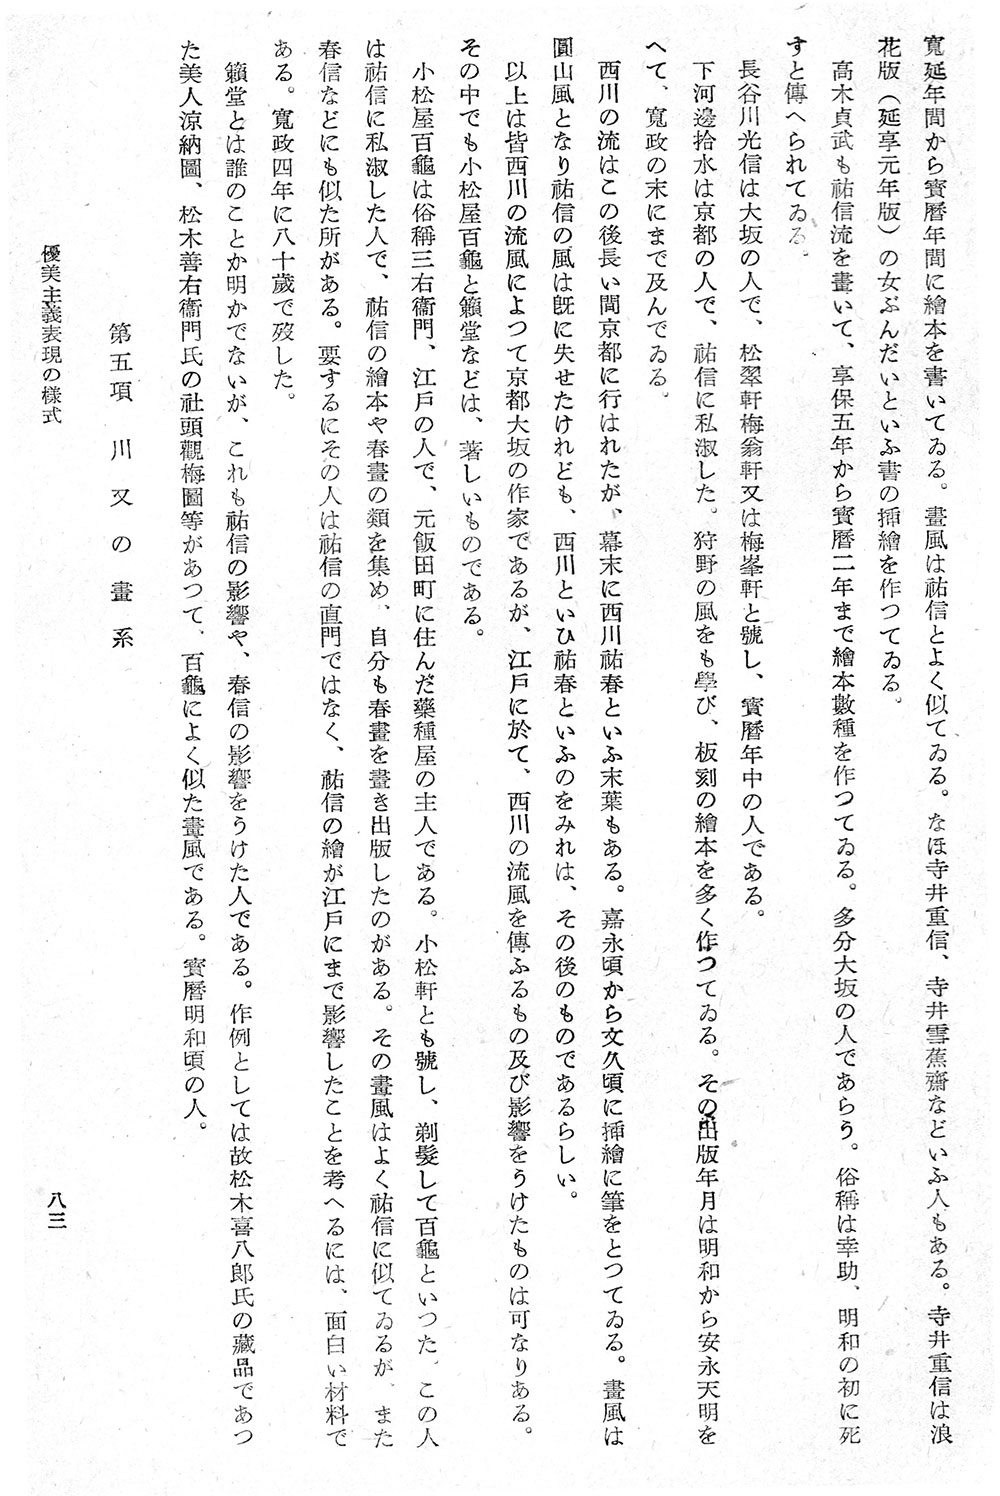 寬延年間から寶曆年間に繪本を書いてゐる。畫風は祐信とよく似てゐる。なほ寺井重信、寺井雪蕉齋などいふ人もある。寺井重信は浪
花版（延享元年版）の女ぶんだいといふ書の挿繪を作つてゐる。
高木貞武も祐信流を畫いて、享保五年から寶曆二年まで繪本數種を作つてゐる。多分大坂の人であらう。俗稱は幸助、明和の初に死
すと傳へられてゐる。
長谷川光信は大坂の人で、松翠軒梅翁軒又は梅峯軒と號し、寶曆年中の人である。
下河邊拾水は京都の人で、祐信に私淑した。狩野の風をも學び、板刻の繪本を多く作つてゐる。その出版年月は明和から安永天明を
へて、寬政の末にまで及んでゐる。
西川の流はこの後長い間京都に行はれたが、幕末に西川祐春といふ末葉もある。嘉永頃から文久頃に挿繪に筆をとつてゐる。畫風は
圓山風となり祐信の風は旣に失せたけれども、西川といひ祐春といふのをみれは、その後のものであるらしい。
以上は皆西川の流風によつて京都大坂の作家であるが、江戶に於て、西川の流風を傳ふるもの及び影響をうけたものは可なりある。
その中でも小松屋百龜と籟堂などは、著しいものである。
小松屋百龜は俗稱三右衞門、江戶の人で、元飯田町に住んだ藥種屋の主人である。小松軒とも號し、剃髮して百龜といつた。この人
は祐信に私淑した人で、祐信の繪本や春畫の類を集め、自分も春畫を畫き出版したのがある。その畫風はよく祐信に似てゐるが、また
春信などにも似た所がある。要するにその人は祐信の直門ではなく、祐信の繪が江戶にまで影響したことを考へるには、面白い材料で
ある。寬政四年に八十歲で歿した。
籟堂とは誰のことか明かでないが、これも祐信の影響や、春信の影響をうけた人である。作例としては故松木喜八郎氏の藏品であつ
た美人涼納圖、松木善右衞門氏の社頭觀梅圖等があつて、百龜によく似た畫風である。寶曆明和頃の人。
第五項　川又の畫系
優美主義表現の樣式
八三